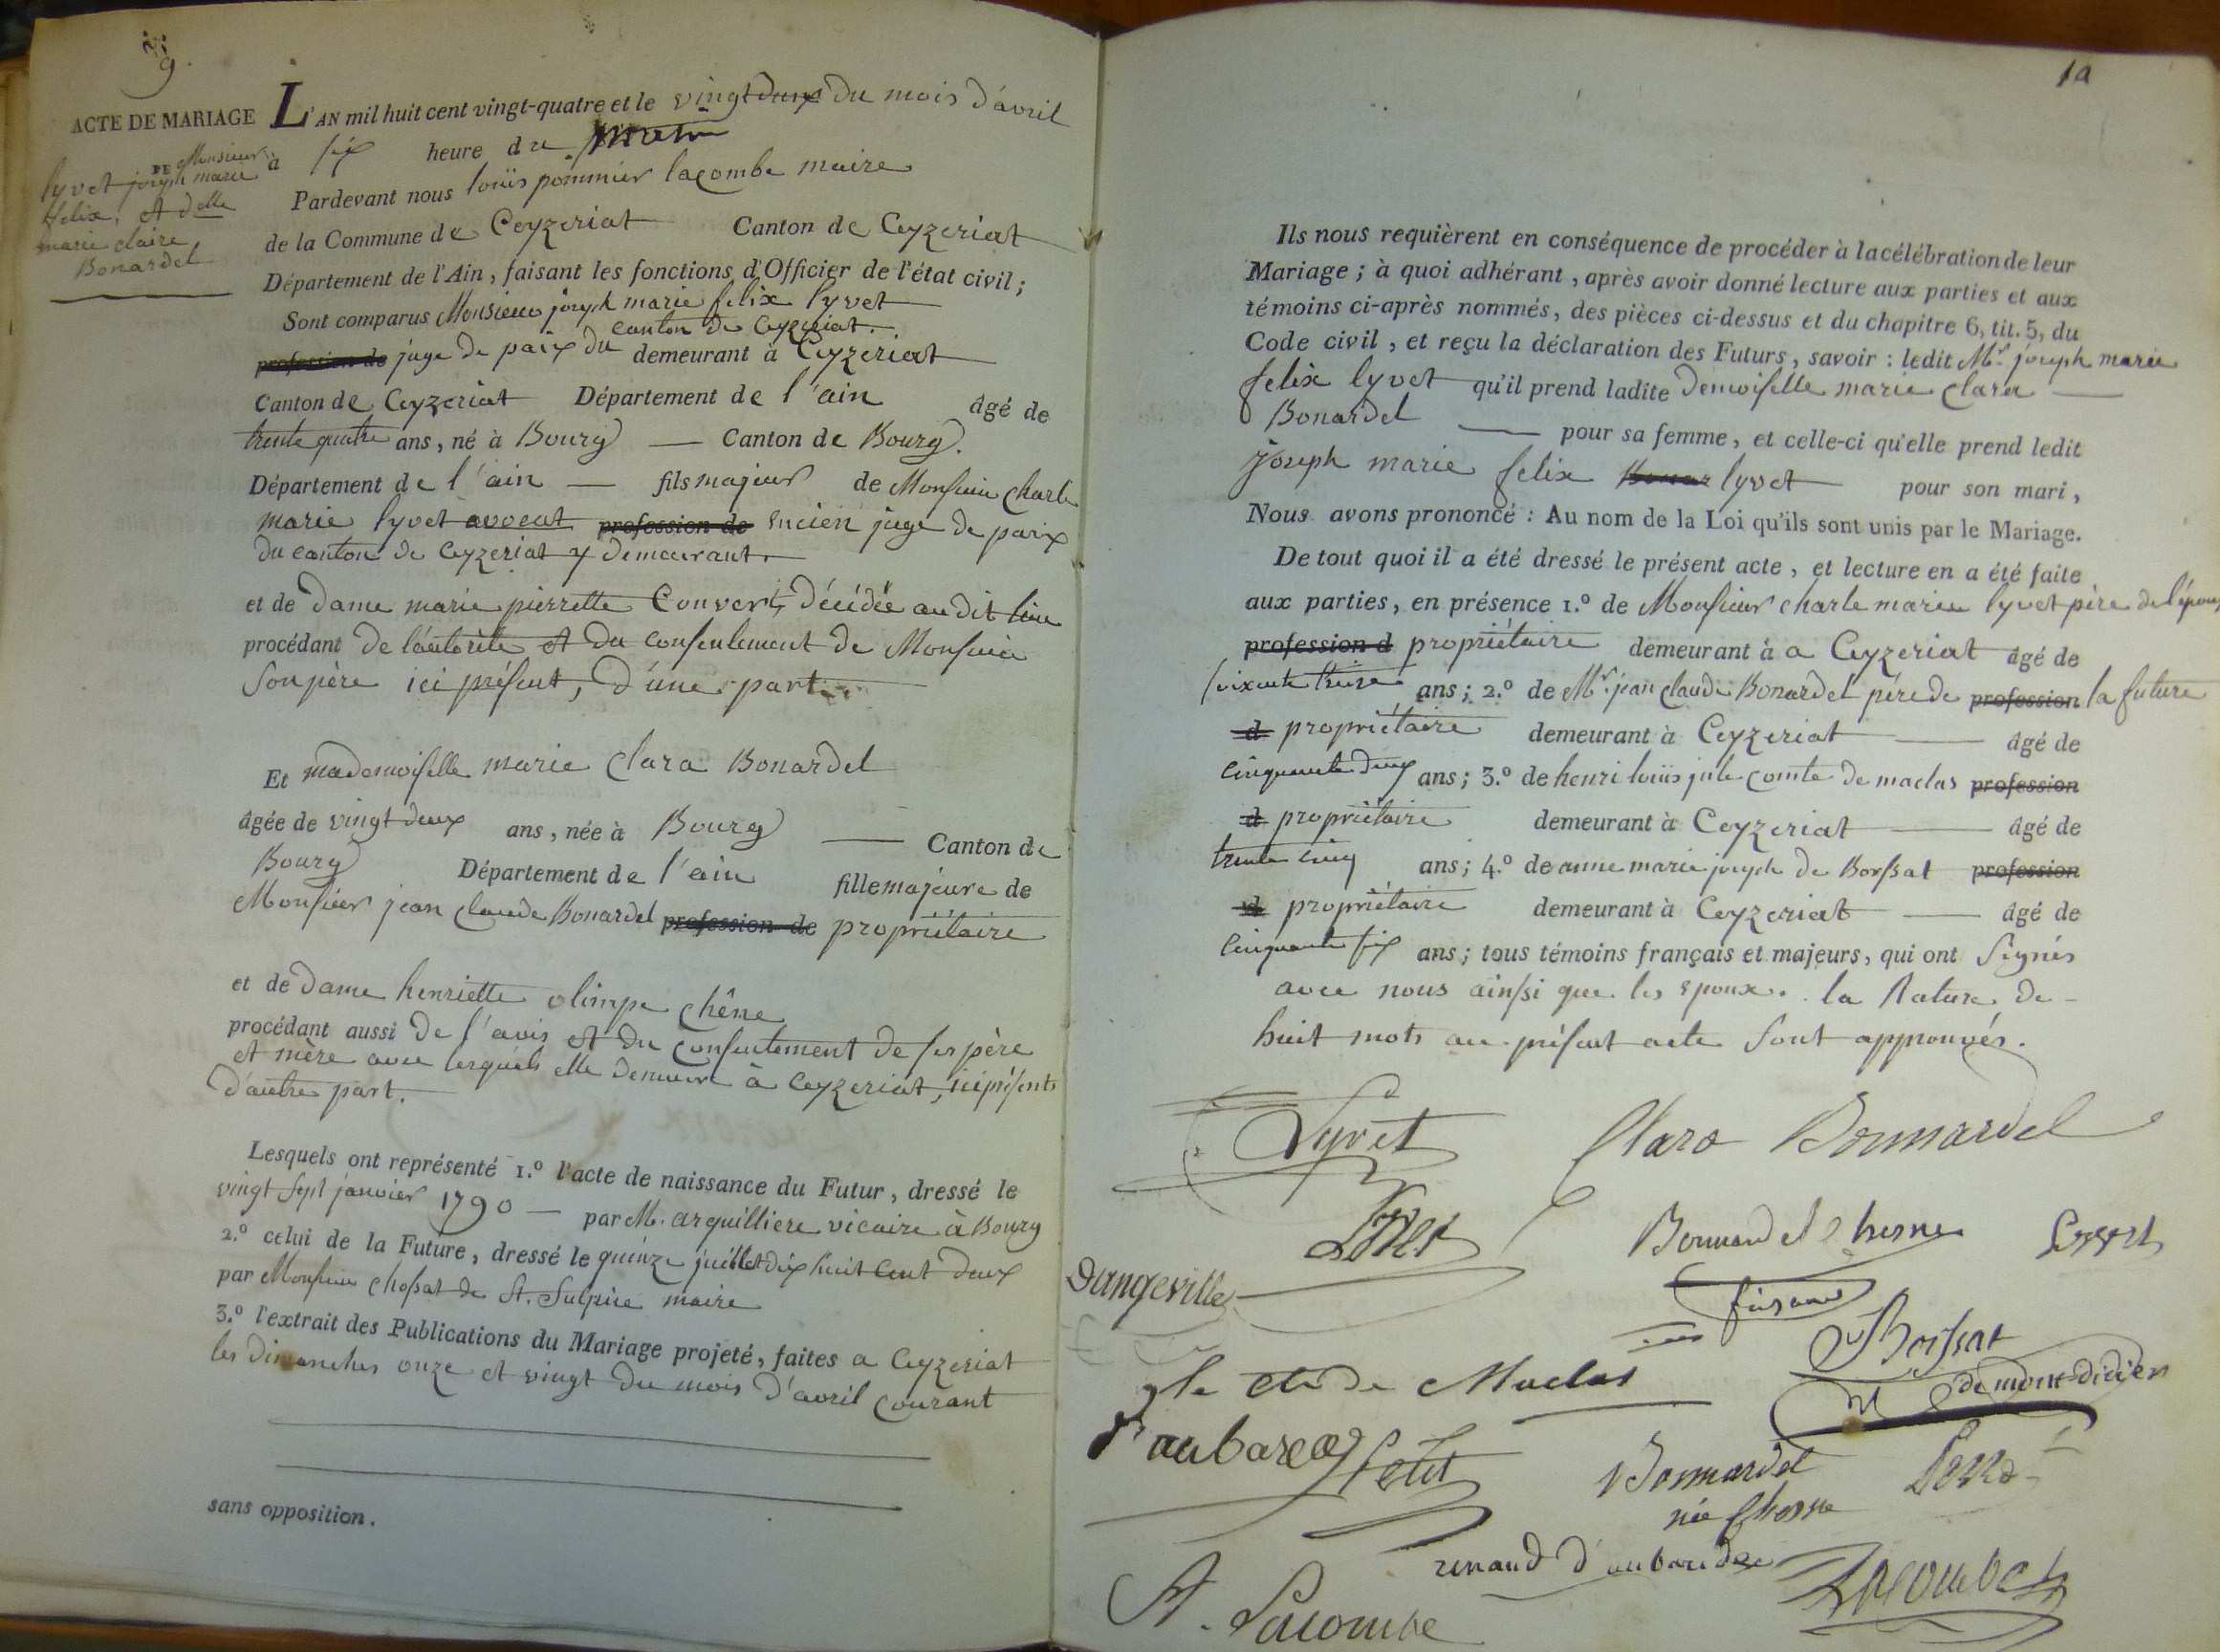 9.
ACTE DE MARIAGE
DE Monsieur
lyvet joseph marie
felix, et delle
marie claire
Bonardel
L'AN mil huit cent vingt-quatre et le vingt deux du mois d'avril
à six heure du matin
Pardevant nous louis pommier lacombe maire
de la Commune de Ceyzeriat Canton de Ceyzeriat
Département de l'Ain, faisant les fonctions d'Officier de l'état civil ;
Sont comparus Monsieur joseph marie felix lyvet
canton de Ceyzeriat.
profession de juge de paix du demeurant à Ceyzeriat
Canton de Ceyzeriat Département de l'ain âgé de
trente quatre ans, né à Bourg — Canton de Bourg.
Département de l'ain — fils majeur de Monsieur charle
marie lyvet avocat profession de encien juge de paix
du canton de Ceyzeriat y demeurant.
et de Dame marie pierrette Convert, décédée au dit lieu
procédant de l'autorité et du consentement de Monsieur
son père ici présent, d'une part.
Et mademoiselle marie Clara Bonardel
âgée de vingt deux ans, née à Bourg — Canton de
Bourg Département de l'ain fille majeure de
Monsieur jean Claude Bonardel profession de propriétaire
et de Dame henriette olimpe chêne
procédant aussi de l'avis et du consentement de ses père
et mère avec lesquels elle demeure à Ceyzeriat, ici présents
d'autre part.
Lesquels ont représenté 1.º l'acte de naissance du Futur, dressé le
vingt sept janvier 1790 — par M. arquilliere vicaire à Bourg
2.º celui de la Future, dressé le quinze juillet dix huit cent deux
par Monsieur chossat de St. Sulpice maire
3.º l'extrait des Publications du Mariage projeté, faites a Ceyzeriat
les dimanches onze et vingt du mois d'avril courant
sans opposition.
10
Ils nous requièrent en conséquence de procéder à la célébration de leur
Mariage ; à quoi adhérant, après avoir donné lecture aux parties et aux
témoins ci-après nommés, des pièces ci-dessus et du chapitre 6, tit. 5, du
Code civil, et reçu la déclaration des Futurs, savoir : ledit Mr. joseph marie
felix lyvet qu'il prend ladite Demoiselle marie Clara —
Bonardel — pour sa femme, et celle-ci qu'elle prend ledit
joseph marie felix Bonar lyvet pour son mari,
Nous avons prononcé : Au nom de la Loi qu'ils sont unis par le Mariage.
De tout quoi il a été dressé le présent acte, et lecture en a été faite
aux parties, en présence 1.º de Monsieur charle marie lyvet père de l'époux
profession d propriétaire demeurant à a Ceyzeriat âgé de
soixante treize ans ; 2.º de Mr. jean claude Bonardel père de profession la future
d propriétaire demeurant à Ceyzeriat — âgé de
cinquante deux ans ; 3.º de henri louis jule comte de maclas profession
d propriétaire demeurant à Ceyzeriat — âgé de
trente cinq ans ; 4.º de anne marie joseph de Borssat profession
d propriétaire demeurant à Ceyzeriat — âgé de
cinquante six ans ; tous témoins français et majeurs, qui ont signés
avec nous ainssi que les epoux. la Rature de -
huit mots au présent acte sont approuvés.
Lyvet Clara Bonnardel
Lyvet Bonnardel chesne
Dangeville
Borssat
jle cte de Maclas
de mont-didier
d'aubarede
Bonnardel
née Chesne
renaud d'aubarede
Lacombe
A. Lacombe